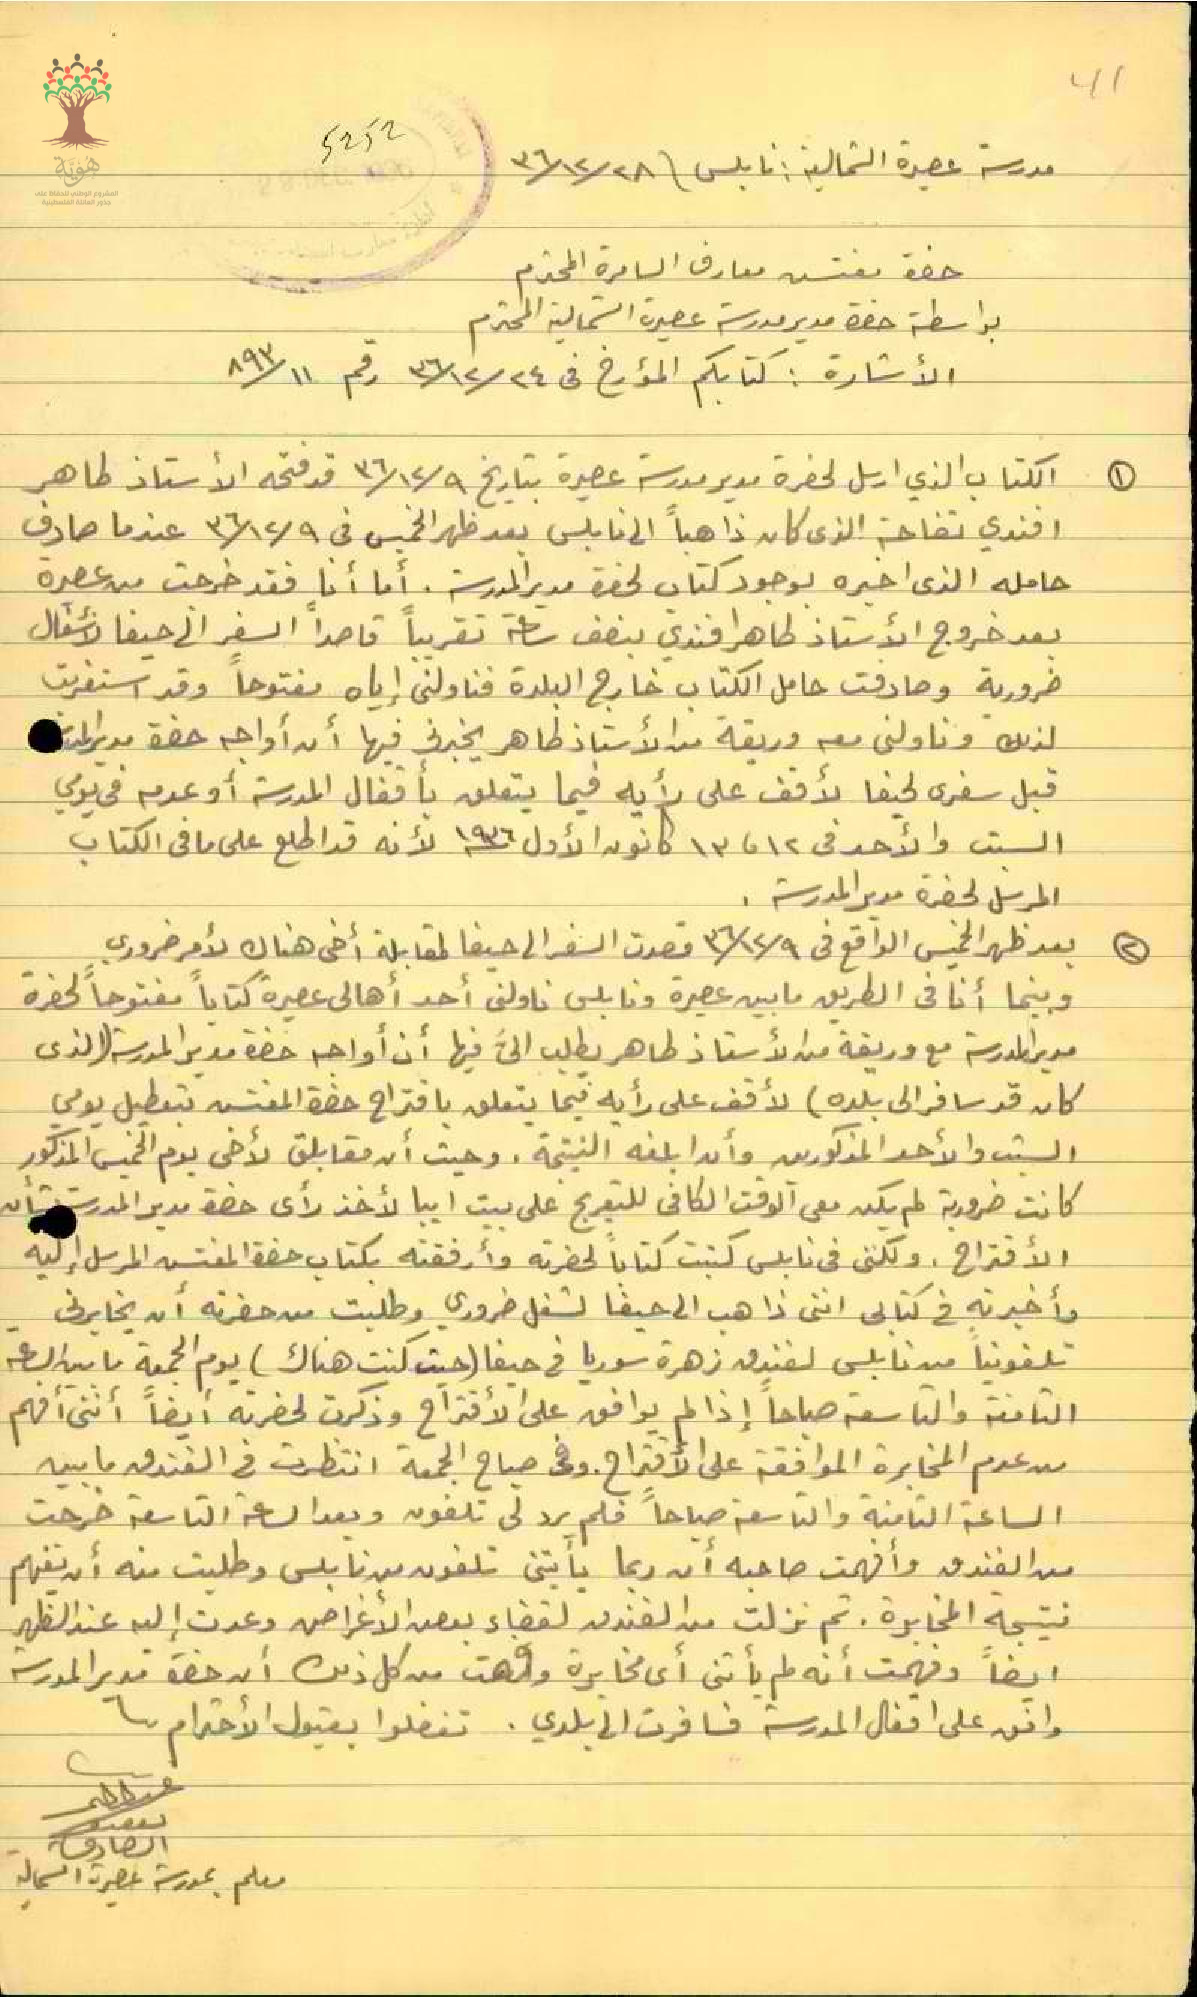 41
5252
28 DEC 1936
هُويّة
المشروع الوطني للحفاظ على
جذور العائلة الفلسطينية
مدرسة عصيرة الشمالية : نابلس / ٢٨/١٢/٣٦
حضرة مفتش معارف السامرة المحترم
بواسطة حضرة مدير مدرسة عصيرة الشمالية المحترم
الأشارة : كتابكم المؤرخ في ٢٤/١٢/٣٦ رقم ١١/٨٩٣
١ الكتاب الذي ارسل لحضرة مدير مدرسة عصيرة بتاريخ ٩/١٢/٣٦ قد فتحه الأستاذ طاهر
افندي تفاحة الذى كان ذاهباً الى نابلس بعد ظهر الخميس في ٩/١٢/٣٦ عندما صادف
حامله الذى اخبره بوجود كتاب لحضرة مدير المدرسة . أما أنا فقد خرجت من عصيرة
بعد خروج الأستاذ طاهر افندي بنصف ساعة تقريباً قاصداً السفر الى حيفا لأشغال
ضرورية وصادفت حامل الكتاب خارج البلدة فناولنى إياه مفتوحاً وقد استغربت
لذلك وناولنى معه وريقة من الأستاذ طاهر يخبرنى فيها أن أواجه حضرة مدير المدرسة
قبل سفرى لحيفا لأقف على رأيه فيما يتعلق بأقفال المدرسة أو عدمه في يومي
السبت والأحد في ١٢ و ١٣ كانون الأول ١٩٣٦ لأنه قد اطلع على ما في الكتاب
المرسل لحضرة مدير المدرسة .
٢ بعد ظهر الخميس الواقع في ٩/١٢/٣٦ قصدت السفر الى حيفا لمقابلة أخى هناك لأمر ضروري
وبينما أنا في الطريق ما بين عصيرة ونابلس ناولنى أحد أهالى عصيرة كتاباً مفتوحاً لحضرة
مدير المدرسة مع وريقة من الأستاذ طاهر يطلب الىّ فيها أن أواجه حضرة مدير المدرسة (الذى
كان قد سافر الى بلده) لأقف على رأيه فيما يتعلق باقتراح حضرة المفتش بتعطيل يومي
السبت والأحد المذكورين وأن ابلغه النتيجة . وحيث أن مقابلتى لأخى يوم الخميس المذكور
كانت ضرورية لم يكن معى الوقت الكافى للتعريج على بيت ايبا لأخذ رأى حضرة مدير المدرسة بشأن
الأقتراح . ولكنى في نابلس كتبت كتاباً لحضرته وأرفقته بكتاب حضرة المفتش المرسل إليه
وأخبرته في كتابى اننى ذاهب الى حيفا لشغل ضروري وطلبت من حضرته أن يخابرنى
تلفونياً من نابلس لفندق زهرة سوريا في حيفا (حيث كنت هناك) يوم الجمعة ما بين الساعة
الثامنة والتاسعة صباحاً إذا لم يوافق على الأقتراح وذكرت لحضرته أيضاً أننى أفهم
من عدم المخابرة الموافقة على الأقتراح . وفى صباح الجمعة انتظرت في الفندق ما بين
الساعة الثامنة والتاسعة صباحاً فلم يرد لى تلفون وبعد الساعة التاسعة خرجت
من الفندق وأفهمت صاحبه أن ربما يأتينى تلفون من نابلس وطلبت منه أن يتفهم
نتيجة المخابرة . ثم نزلت من الفندق لقضاء بعض الأغراض وعدت إليه عند الظهر
ايضاً وفهمت أنه لم يأتنى أى مخابرة وفهمت من كل ذلك أن حضرة مدير المدرسة
وافق على اقفال المدرسة فسافرت الى بلدي . تفضلوا بقبول الأحترام
معلم بمدرسة عصيرة الشمالية